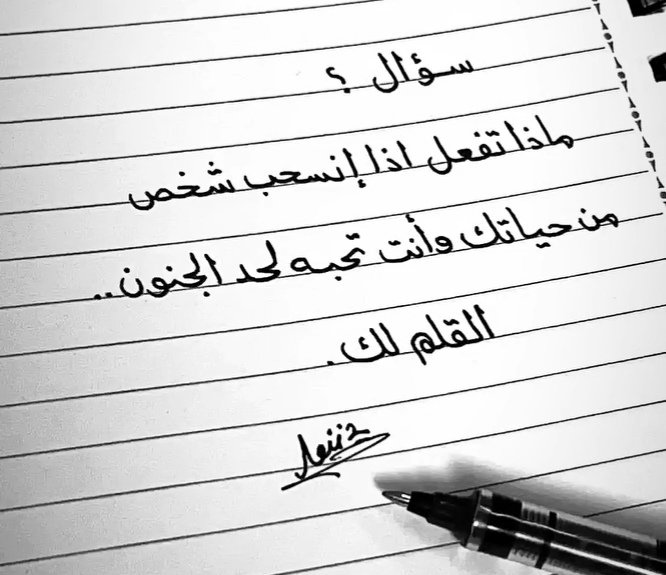 سؤال ؟
ماذا تفعل اذا إنسحب شخص
من حياتك وأنت تحبه لحد الجنون..
القلم لك.